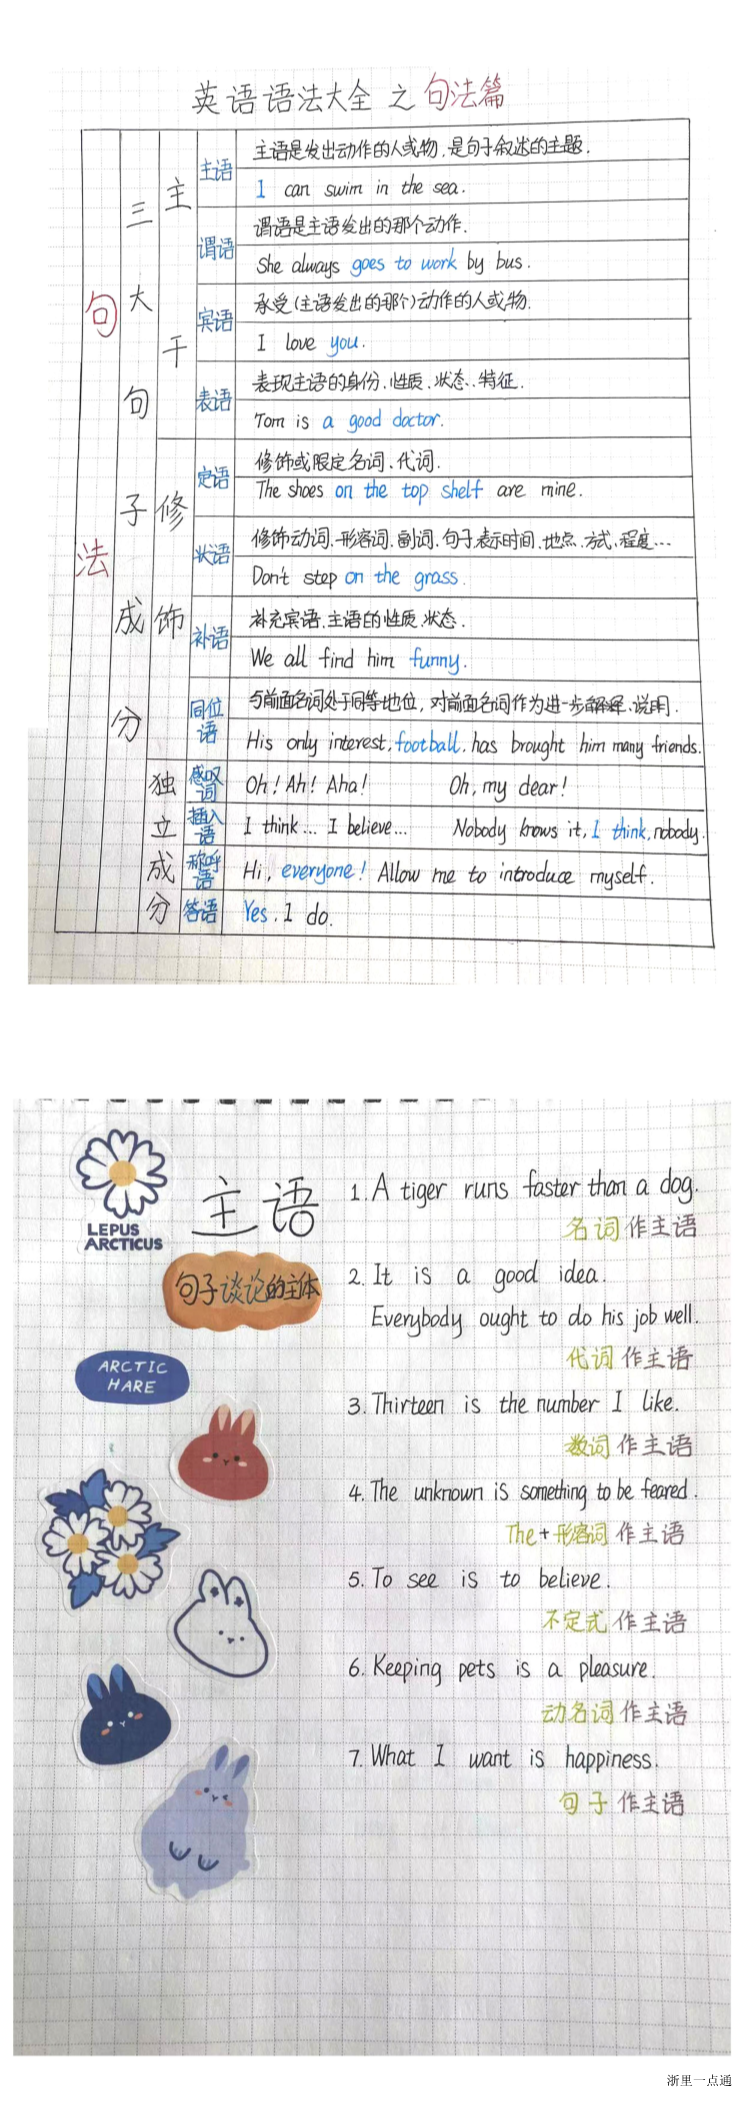 英语语法大全之句法篇
句法
三大句子成分
主干
主语
主语是发出动作的人或物,是句子叙述的主题.
I can swim in the sea.
谓语
谓语是主语发出的那个动作.
She always goes to work by bus.
宾语
承受(主语发出的那个)动作的人或物.
I love you.
表语
表现主语的身份、性质、状态、特征.
Tom is a good doctor.
修饰
定语
修饰或限定名词、代词.
The shoes on the top shelf are mine.
状语
修饰动词、形容词、副词、句子,表示时间、地点、方式、程度…
Don't step on the grass.
补语
补充宾语、主语的性质、状态.
We all find him funny.
同位语
与前面名词处于同等地位,对前面名词作为进一步解释、说明.
His only interest, football, has brought him many friends.
独立成分
感叹词
Oh! Ah! Aha! Oh, my dear!
插入语
I think... I believe... Nobody knows it, I think, nobody.
称呼语
Hi, everyone! Allow me to introduce myself.
答语
Yes, I do.
LEPUS
ARCTICUS
主语
句子谈论的主体
ARCTIC
HARE
1. A tiger runs faster than a dog.
名词作主语
2. It is a good idea.
Everybody ought to do his job well.
代词作主语
3. Thirteen is the number I like.
数词作主语
4. The unknown is something to be feared.
The+形容词作主语
5. To see is to believe.
不定式作主语
6. Keeping pets is a pleasure.
动名词作主语
7. What I want is happiness.
句子作主语
浙里一点通